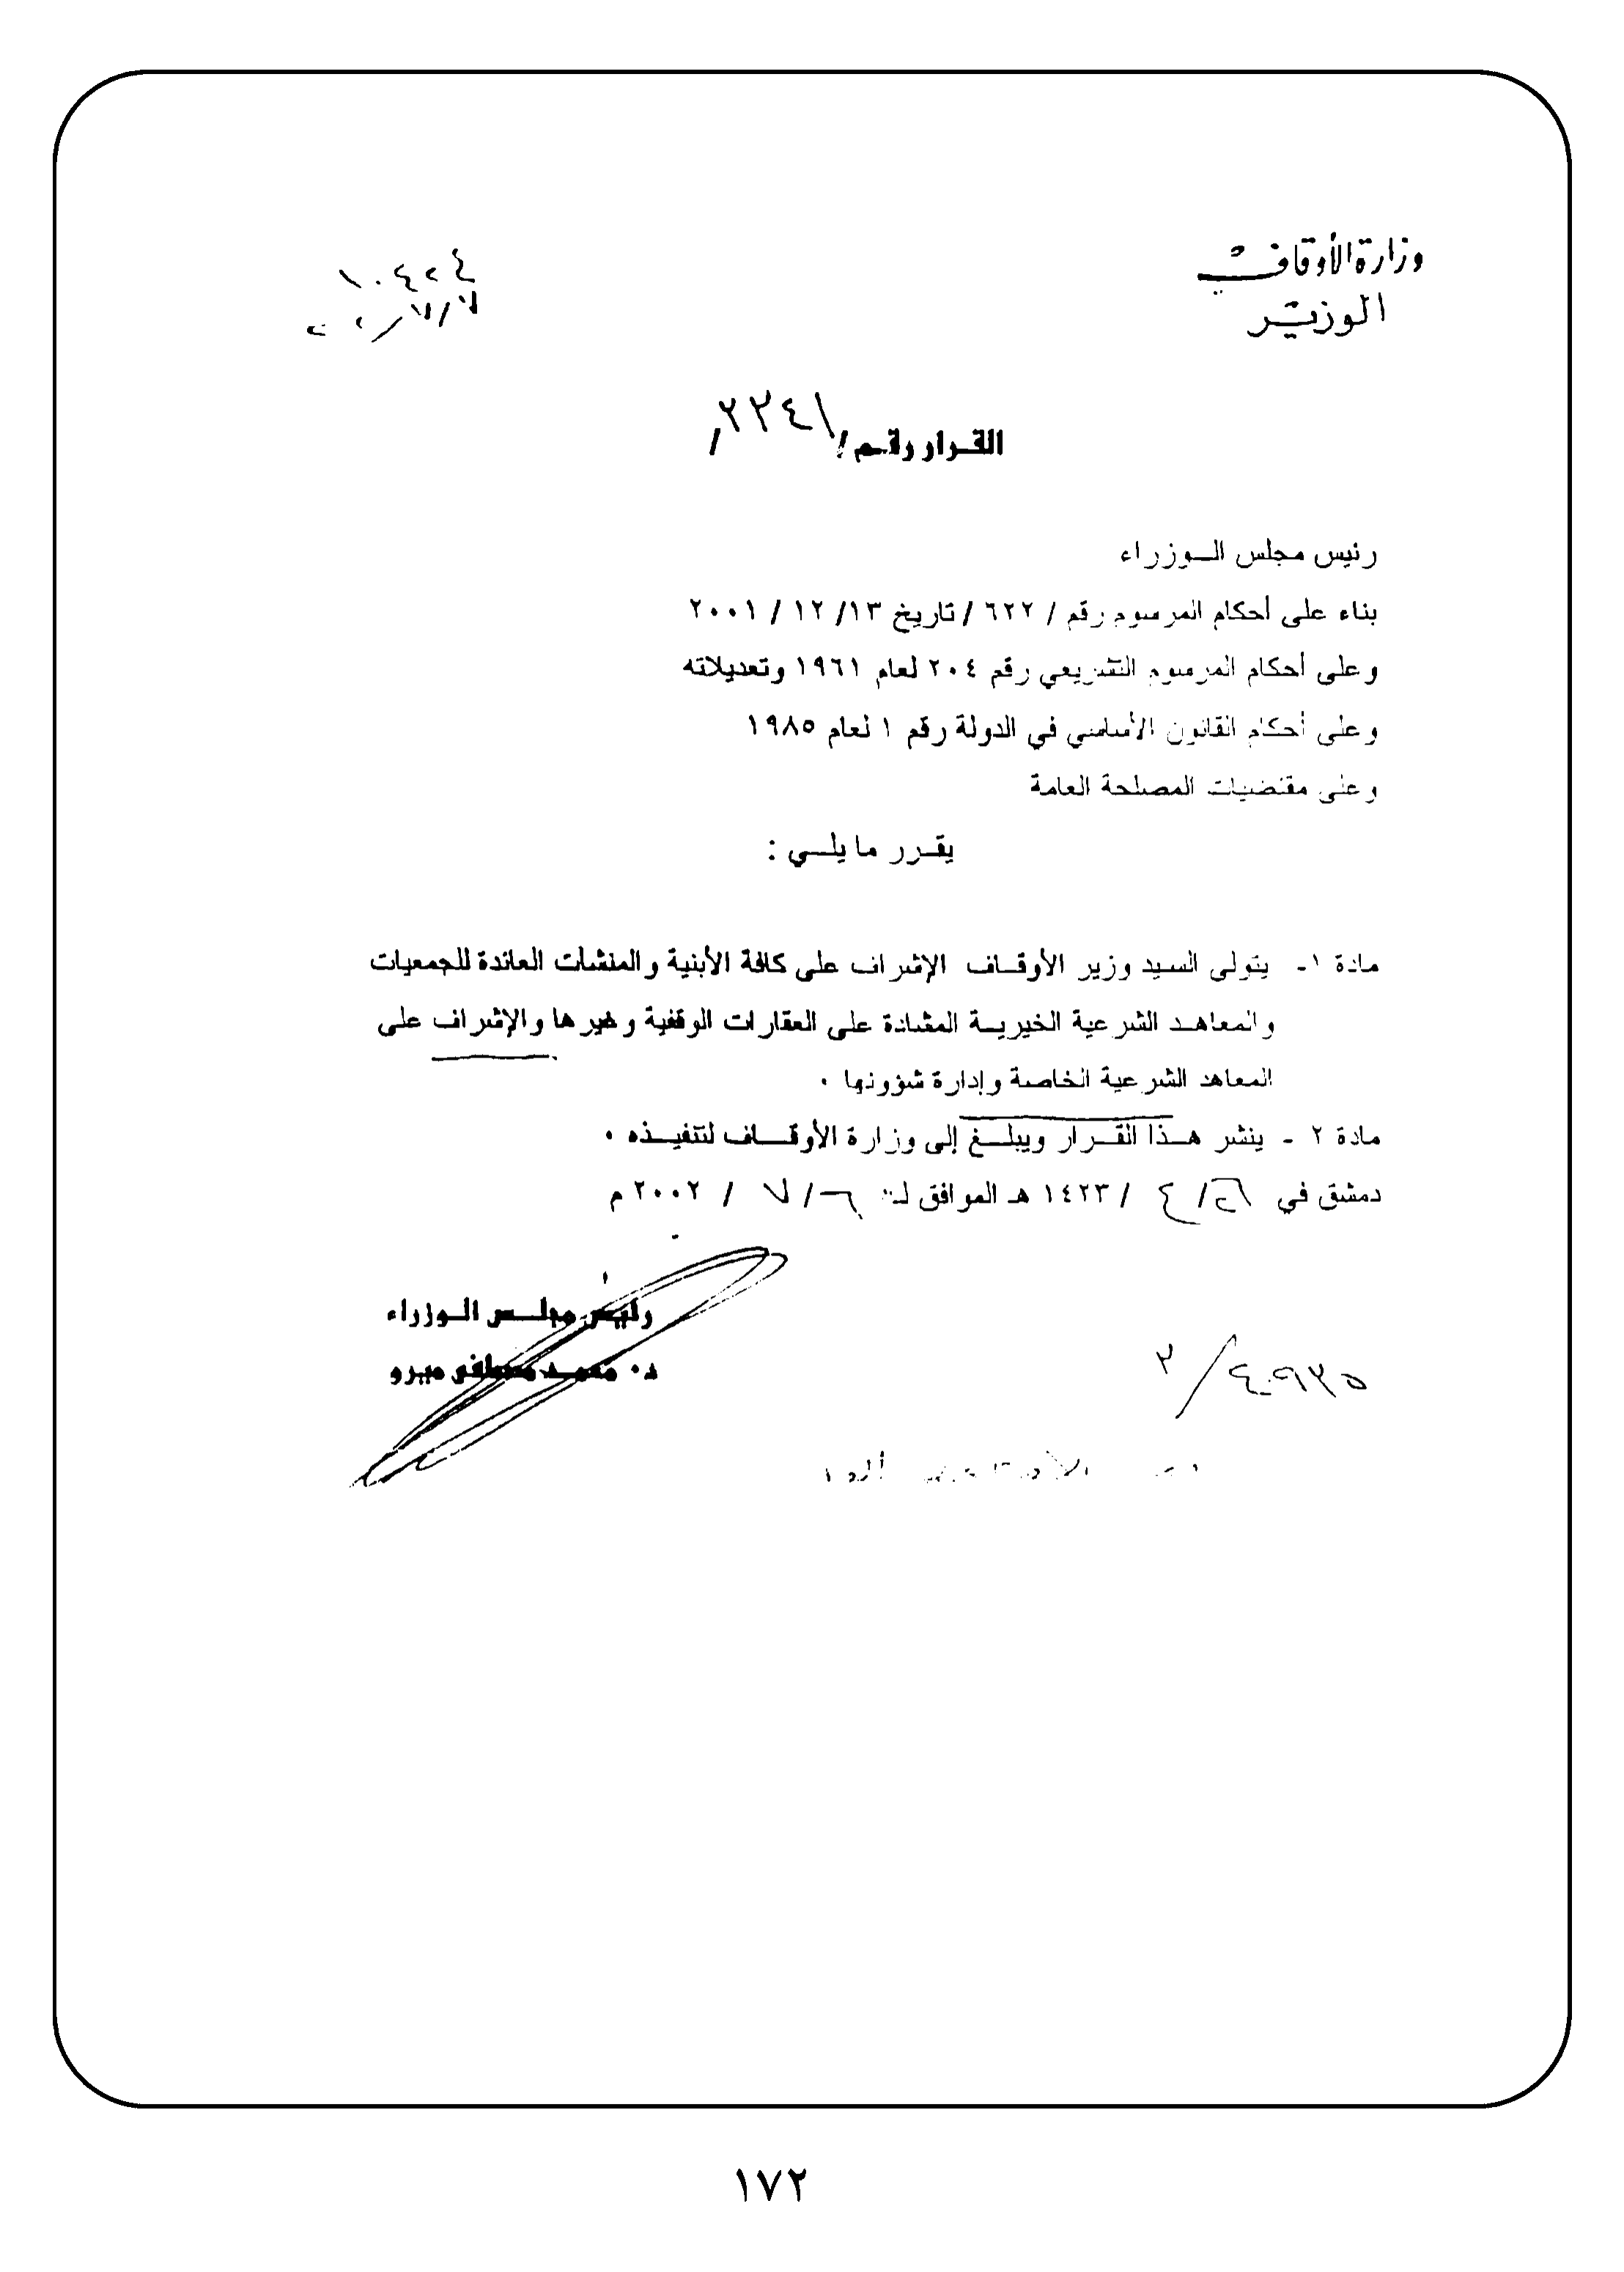 وزارة الأوقاف
الوزير
١٠٤٢٤
٧/٧/
القرار رقم /٢٣٤١/
رئيس مجلس الوزراء
بناء على أحكام المرسوم رقم / ٦٢٢ / تاريخ ١٣/ ١٢ / ٢٠٠١
وعلى أحكام المرسوم التشريعي رقم ٢٠٤ لعام ١٩٦١ وتعديلاته
وعلى أحكام القانون الأساسي في الدولة رقم ١ لعام ١٩٨٥
وعلى مقتضيات المصلحة العامة
يقرر ما يلي :
مادة ١- يتولى السيد وزير الأوقاف الإشراف على كافة الأبنية والمنشآت العائدة للجمعيات
والمعاهد الشرعية الخيرية المشادة على العقارات الوقفية وغيرها والإشراف على
المعاهد الشرعية الخاصة وإدارة شؤونها .
مادة ٢ - ينشر هذا القرار ويبلغ إلى وزارة الأوقاف لتنفيذه .
دمشق في ٢٦/ ٤ / ١٤٢٣ هـ الموافق لـ ٦ / ٧ / ٢٠٠٢ م
رئيس مجلس الوزراء
د. محمد مصطفى ميرو
١٧٢